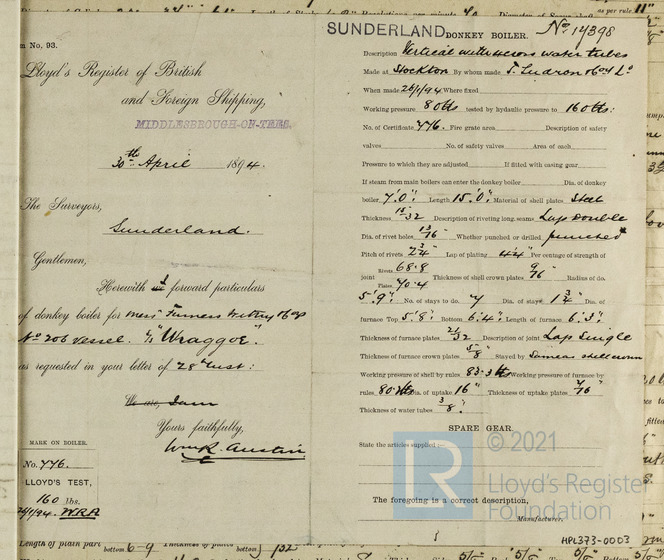 as per rule 11"
m No. 93.
Lloyd's Register of British
and Foreign Shipping,
MIDDLESBROUGH-ON-TEES.
30th April 1894.
The Surveyors,
Sunderland.
Gentlemen,
Herewith I forward particulars
of donkey boiler for Mess
No 206 vessel. S/S "Wraggoe".
as requested in your letter of 28th inst:
We are, I am
Yours faithfully,
Wm R. Austin
MARK ON BOILER.
No. 776.
LLOYD'S TEST,
160 lbs.
26/1/94 WRA
SUNDERLAND DONKEY BOILER. No 14398
Description Vertical with cross water tubes
Made at Stockton By whom made T. Sudron & Co Ld
When made 26/1/94 Where fixed
Working pressure 80 lbs tested by hydraulic pressure to 160 lbs:
No. of Certificate 776. Fire grate area Description of safety
valves No. of safety valves Area of each
Pressure to which they are adjusted If fitted with casing gear
If steam from main boilers can enter the donkey boiler Dia. of donkey
boiler 7'.0" Length 15'.0" Material of shell plates Steel
Thickness 15/32 Description of riveting long. seams Lap Double
Dia. of rivet holes 13/16" Whether punched or drilled punched
Pitch of rivets 2 3/4" Lap of plating 4 1/4" Per centage of strength of
joint Rivets 68.8 Plates 70.4 Thickness of shell crown plates 9/16" Radius of do.
5'.9" No. of stays to do. 7 Dia. of stays 1 3/4" Dia. of
furnace Top 5'.8" Bottom 6'.4" Length of furnace 6'.3"
Thickness of furnace plates 21/32 Description of joint Lap Single
Thickness of furnace crown plates 5/8" Stayed by Same as shell crown
Working pressure of shell by rules 83.3 lbs Working pressure of furnace by
rules 80 lbs Dia. of uptake 16" Thickness of uptake plates 7/16"
Thickness of water tubes 3/8"
SPARE GEAR.
State the articles supplied :—
The foregoing is a correct description,
Manufacturer.
LR © 2021
Lloyd's Register
Foundation
HPL373-0003
Length of plain part bottom 6-9 Thickness of plates bottom